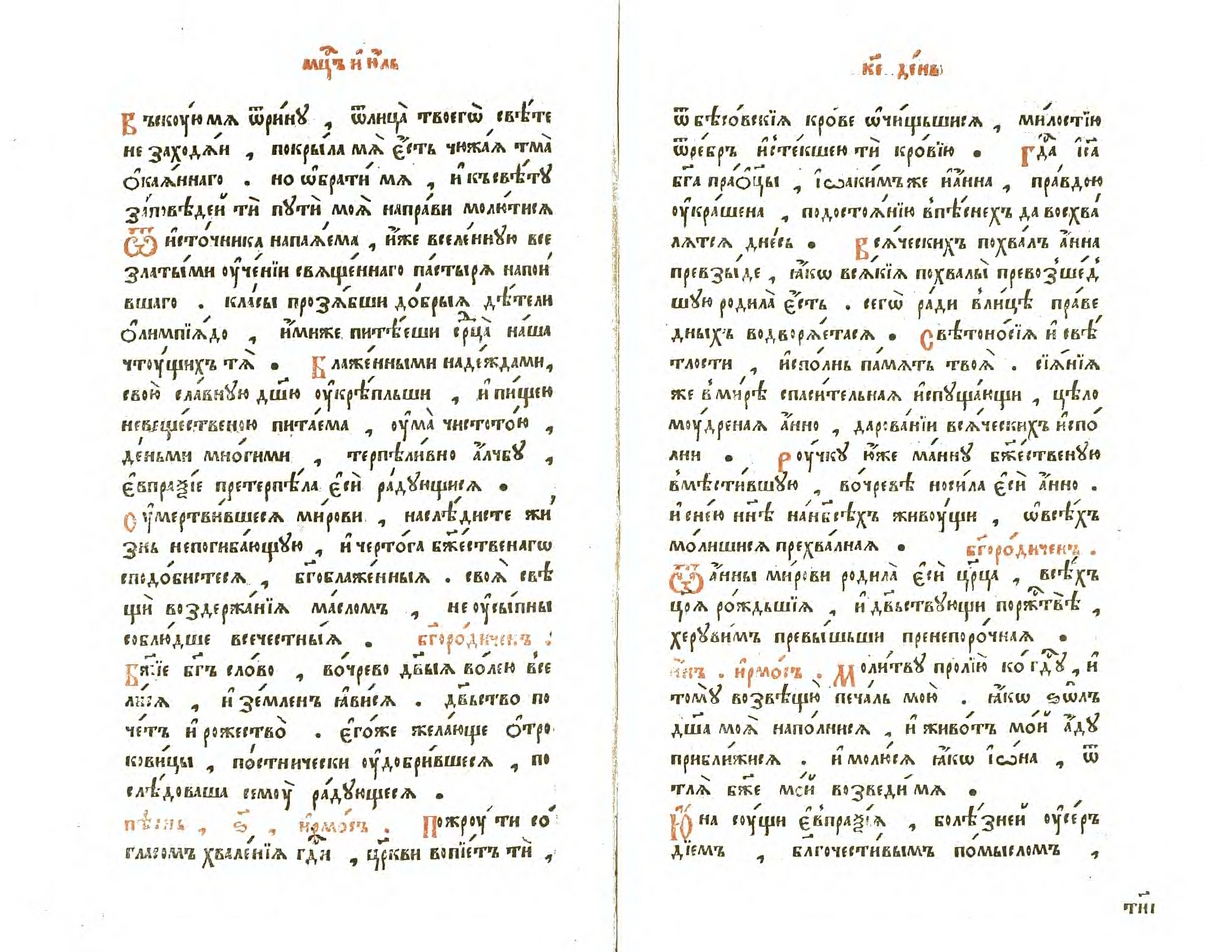 мц҃ъ и҆ ю҆ль
Въскоую мѧ ѿри́ну , ѿлица̀ твоегѡ̀ свѣ́те
не заходѧ́и , покры́ла мѧ̀ є҆́сть чюжа́ѧ тма̀
ѻ҆каѧ́ннаго . но ѡ҆брати́ мѧ , и҆ къ свѣ́ту
за́повѣдей тѝ пути̂ моѧ̀ напра́ви молю́тисѧ
Ѿ и҆сто́чника напаѧ́ема , и҆́же вселе́нную все
златы́ми оу҆че́нїи свѧще́ннаго па́стырѧ напои́
вшаго . кла́сы прозѧ́бши до́брыѧ дѣ́тели
ѻ҆лимпїѧ́до , и҆́миже пита́еши срⷣца̀ на́ша
чтоу́щихъ тѧ̀ . Блаже́нными наде́ждами,
свою̀ сла́вную дш҃ю оу҆крѣ́пльши , и҆ пи́щею
невеще́ственою пита́ема , оу҆ма̀ чистото́ю ,
де́ньми мно́гими , терпѣли́вно а҆́лчбу ,
є҆впраѯі́е претерпѣ́ла є҆сѝ ра́дующисѧ .
Оу҆мертви́вшесѧ ми́рови , наслѣ́дисте жи́
знь непогиба́ющую , и҆ черто́га бж҃е́ственагѡ
сподо́бистесѧ , бг҃облаже́нныѧ . своѧ̀ свѣ
щѝ воздержа́нїѧ ма́сломъ , не оу҆сы́пны
соблю́дше всече́стныѧ . бг҃оро́диченъ .
Бж҃їе бг҃ъ сло́во , во чре́во дв҃ыѧ во́лею все
ли́сѧ , и҆ землемъ ꙗ҆ви́сѧ . дв҃ьство по
че́тъ и҆ рожество̀ . є҆го́же жела́юще ѻ҆тро
кови́цы , по́стнически оу҆добри́вшесѧ , по
слѣ́доваша семоу̀ ра́дующесѧ .
пѣ́снь , ѕ҃ , и҆рмо́съ . Пожроу́ ти со
гла́сомъ хвале́нїѧ гд҇и , цр҃кви вопїе́тъ тѝ ,
к҃е де́нь
ѿ бѣсо́вскїѧ кро́ве ѡ҆чи́щьшисѧ , ми́лостїю
ѿ ре́бръ и҆сте́кшею тѝ кро́вїю . Гд҇а і҆с҃а
бг҃а праѻ҆́цы , і҆ѡаки́мъ же и҆ а҆́нна , пра́вдою
оу҆кра́шена , по достоѧ́нїю в̾ пѣ́снехъ да восхва́
лѧтсѧ дне́сь . Всѧ́ческихъ похва́лъ а҆́нна
превзы́де , ꙗ҆́кѡ всѧ́кїѧ похвалы̀ превозше́д̾
шую роди́ла є҆́сть . сегѡ̀ ра́ди в̾ ли́цѣ пра́ве
дныхъ водворѧ́етасѧ . Свѣтоно́сїѧ и҆ свѣ́
тлости , и҆спо́лнь па́мѧть твоѧ̀ . сїѧ́нїѧ
же в̾ ми́рѣ спаси́тельнаѧ и҆спуща́ющи , цѣ́ло
моу́дренаѧ а҆́нно , дарова́нїи всѧ́ческихъ и҆спо́
лни . Роу́чку ю҆́же ма́нну бж҃е́ственую
в̾мѣсти́вшую , во чре́вѣ носи́ла є҆сѝ а҆́нно .
и҆ с не́ю нн҃ѣ на́с̾ всѣ́хъ живоу́щи , ѡ҆ всѣ́хъ
молѧ́щисѧ прехва́лнаѧ . бг҃оро́диченъ .
Ѿ а҆́нны ми́рови роди́ла є҆сѝ цр҃ца , всѣ́хъ
цр҃ѧ ро́ждьшїѧ , и҆ дв҃ьствующи порж҇твѣ̀ ,
херуви́мъ превы́шьши пренепоро́чнаѧ .
и҆́нъ . и҆рмо́съ . Моли́тву пролїю̀ ко гд҇у , и҆
тому̀ возвѣщу̀ печа́ль мою̀ . ꙗ҆́кѡ ѕѡ́лъ
дш҃а моѧ̀ напо́лнисѧ , и҆ живо́тъ мо́й а҆́ду
прибли́жисѧ . и҆ молю́сѧ ꙗ҆́кѡ і҆ѡ́на , ѿ
тлѧ̀ бж҃е мо́й возведи́ мѧ .
Ю҆́на соу́щи є҆впраѯі́ѧ , болѣ́зней оу҆се́р
дїемъ , блг҃очести́вымъ по́мысломъ ,
тн҃і